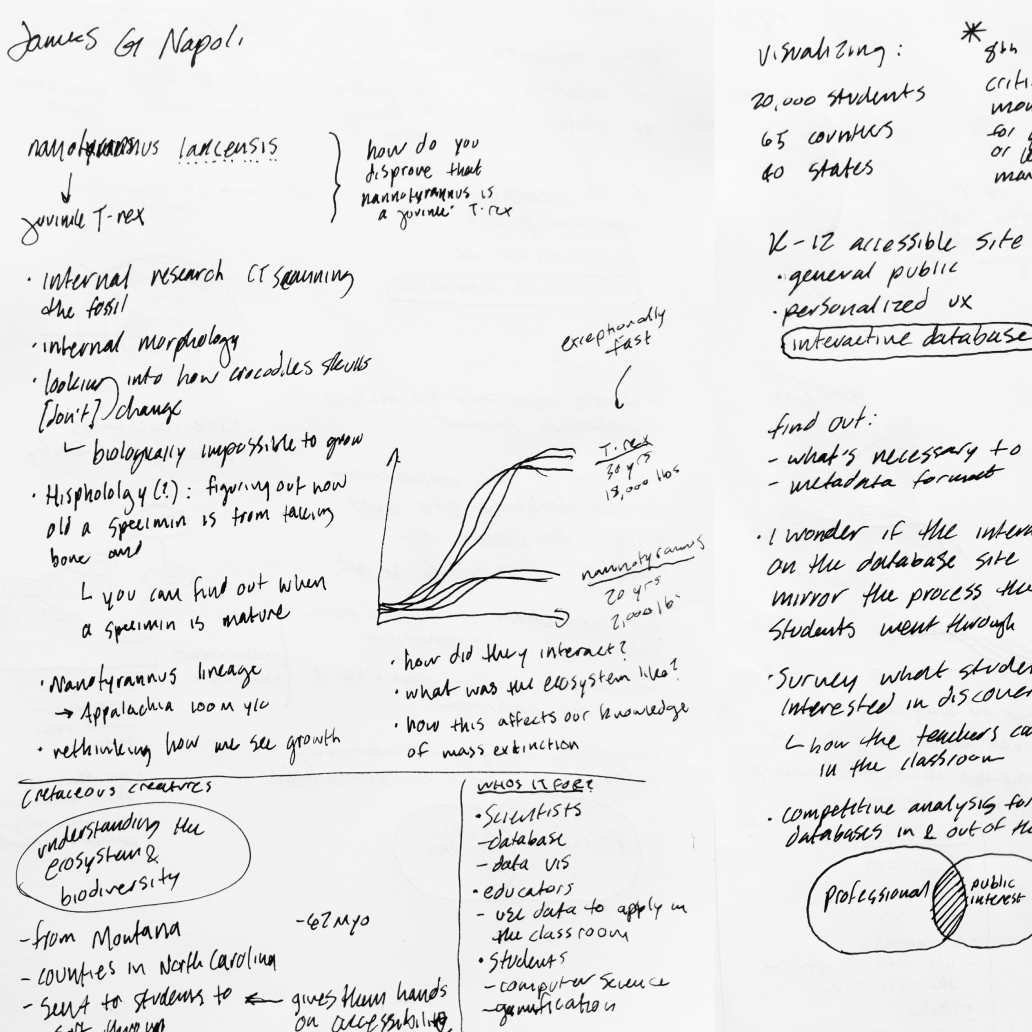 James G Napoli
nanotyrannus lancensis
juvinile T-rex
how do you
disprove that
nannotyrannus is
a juvinile T-rex
· internal research CT scanning
the fossil
· internal morphology
· looking into how crocodiles skulls
[don't] change
biologically impossible to grow
· Hisphololgy(?): figuring out how
old a specimin is from taking
bone and
you can find out when
a specimin is mature
· Nanotyrannus lineage
→ Appalachia 100m y/o
· rethinking how we see growth
exceptionally
fast
T-rex
30 yrs
18,000 lbs
nannotyrannus
20 yrs
2,000 lbs
· how did they interact?
· what was the ecosystem like?
· how this affects our knowledge
of mass extinction
cretaceous creatures
understanding the
ecosystem &
biodiversity
- from Montana
- 67 myo
- counties in North Carolina
- sent to students to ← gives them hands
on accessibility
WHOS IT FOR?
· Scientists
- database
- data vis
· educators
- use data to apply in
the classroom
· students
- computer science
- gamification
visualizing:
20,000 students
65 counties
40 states
* 8th
K-12 accessible site
· general public
· personalized ux
interactive database
find out:
- what's necessary to
- metadata format
· I wonder if the
on the database site
mirror the process
students went through
· Survey what
interested in
how the teachers
in the classroom
· competitive analysis for
databases in & out of
professional
public
interest